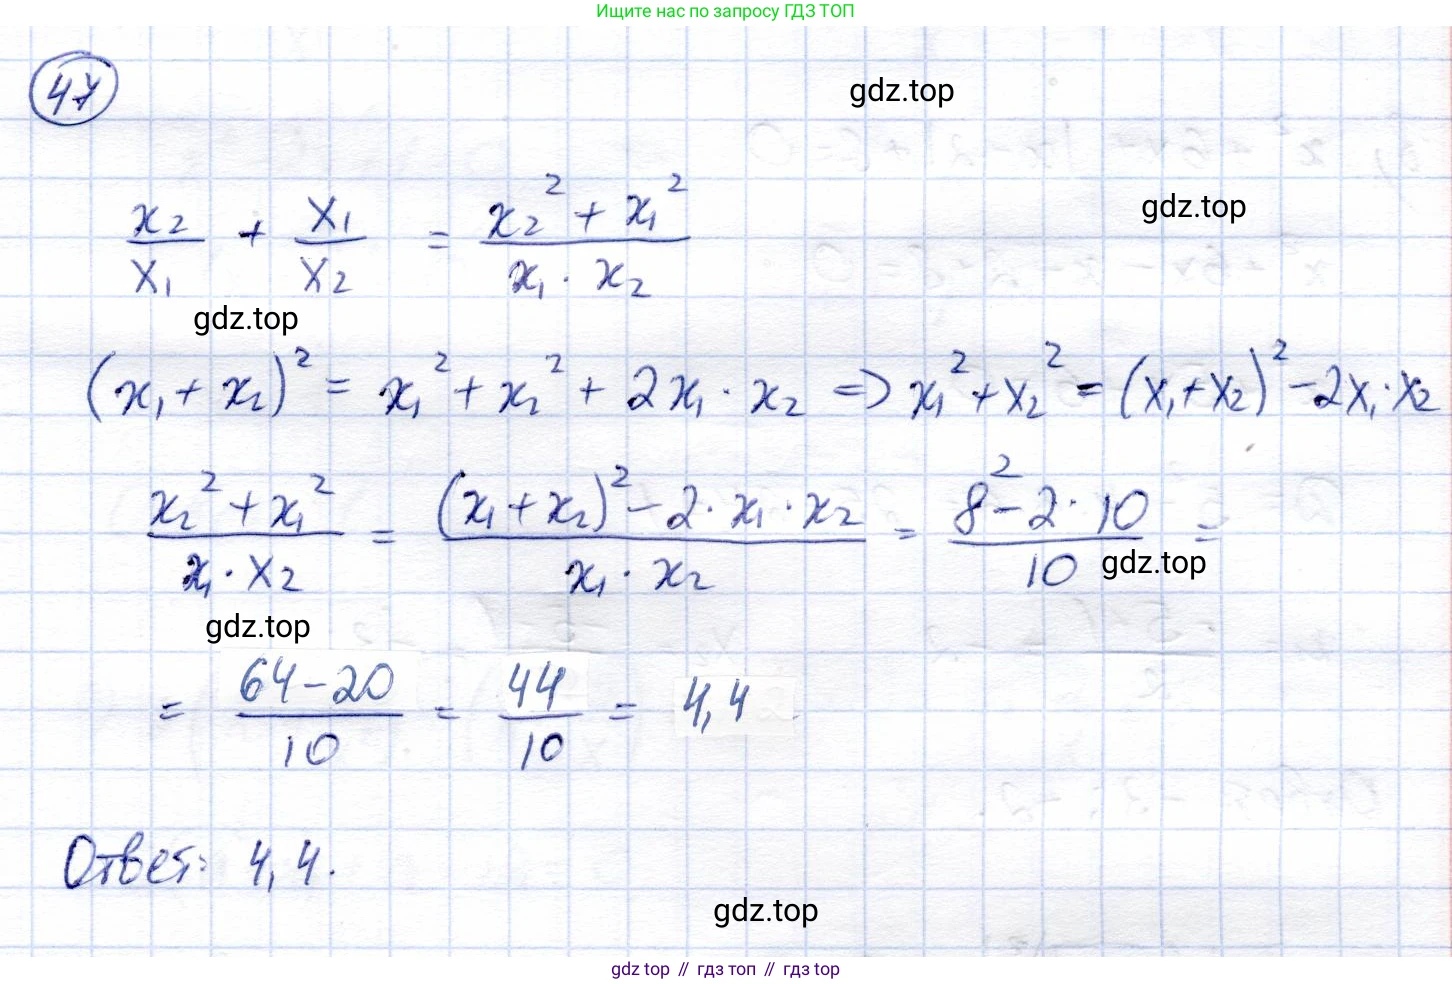 Ищите нас по запросу ГДЗ ТОП
47
gdz.top
x₂/x₁ + x₁/x₂ = (x₂² + x₁²)/(x₁ · x₂)
gdz.top
gdz.top
(x₁ + x₂)² = x₁² + x₂² + 2x₁ · x₂ => x₁² + x₂² = (x₁ + x₂)² - 2x₁ · x₂
(x₂² + x₁²)/(x₁ · x₂) = ((x₁ + x₂)² - 2 · x₁ · x₂)/(x₁ · x₂) = (8² - 2 · 10)/10 =
gdz.top
gdz.top
= (64 - 20)/10 = 44/10 = 4,4
Ответ: 4,4.
gdz.top
gdz top // гдз топ // гдз top